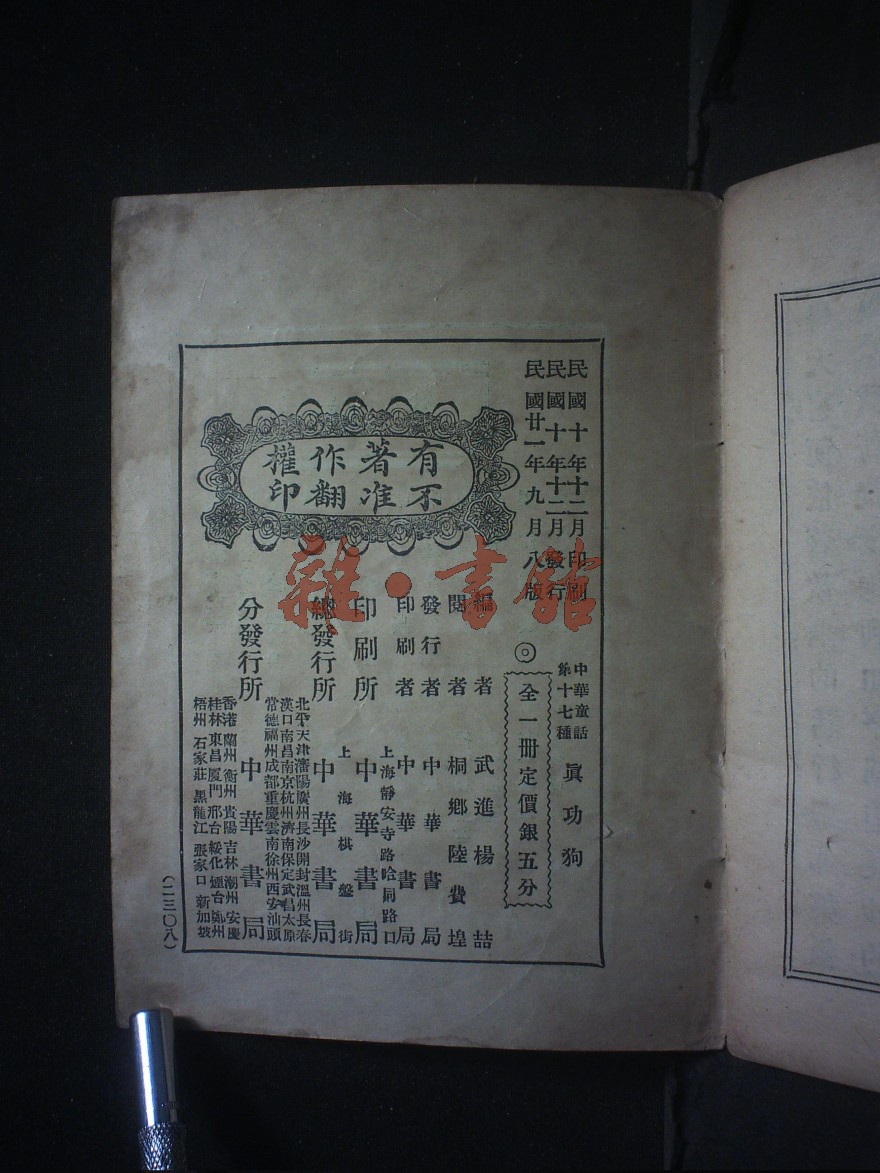 民國十年十二月印刷
民國十年十二月發行
民國廿一年九月八版
中華童話
第十七種
眞功狗
◎
全一冊定價銀五分
有著作權
不准翻印
編者 武進楊喆
閱者 桐鄉陸費堭
發行者 中華書局
印刷者 中華書局
上海靜安寺路哈同路口
印刷所 中華書局
上海棋盤街
總發行所 中華書局
北平天津瀋陽廣州長沙開封溫州長春
漢口南昌南京杭州濟南保定武昌太原
常德福州成都重慶雲南徐州西安汕頭
分發行所 中華書局
香港蘭州衡州貴陽吉林潮州安慶
桂林東昌厦門邢台綏化煙台鄭州
梧州 石家莊 黑龍江 張家口 新加坡
(二三〇八)
雜·書館